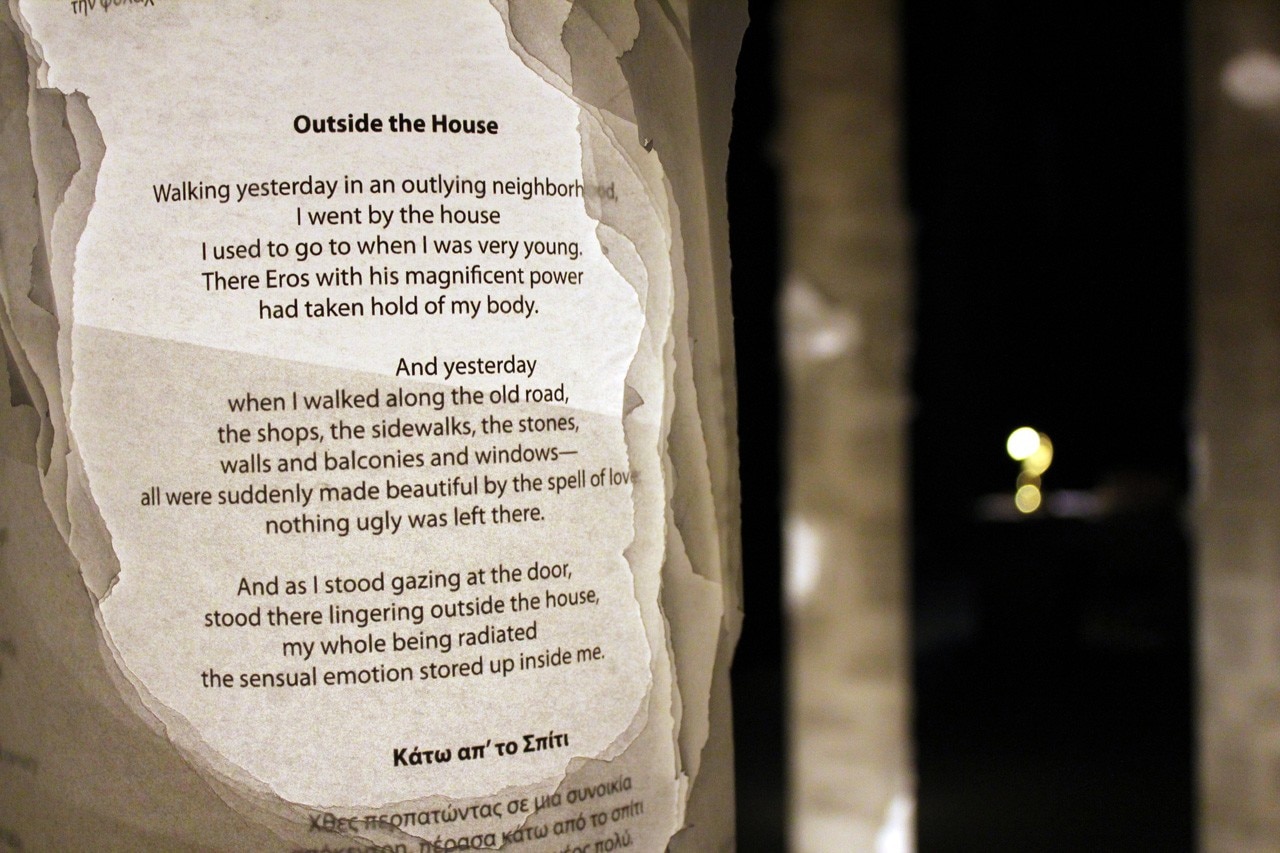 την φυλαχ
Outside the House
Walking yesterday in an outlying neighborhood,
I went by the house
I used to go to when I was very young.
There Eros with his magnificent power
had taken hold of my body.
And yesterday
when I walked along the old road,
the shops, the sidewalks, the stones,
walls and balconies and windows—
all were suddenly made beautiful by the spell of love
nothing ugly was left there.
And as I stood gazing at the door,
stood there lingering outside the house,
my whole being radiated
the sensual emotion stored up inside me.
Κάτω απ’ το Σπίτι
Χθες περπατώντας σε μια συνοικία
πέρασα κάτω από το σπίτι
πολύ.